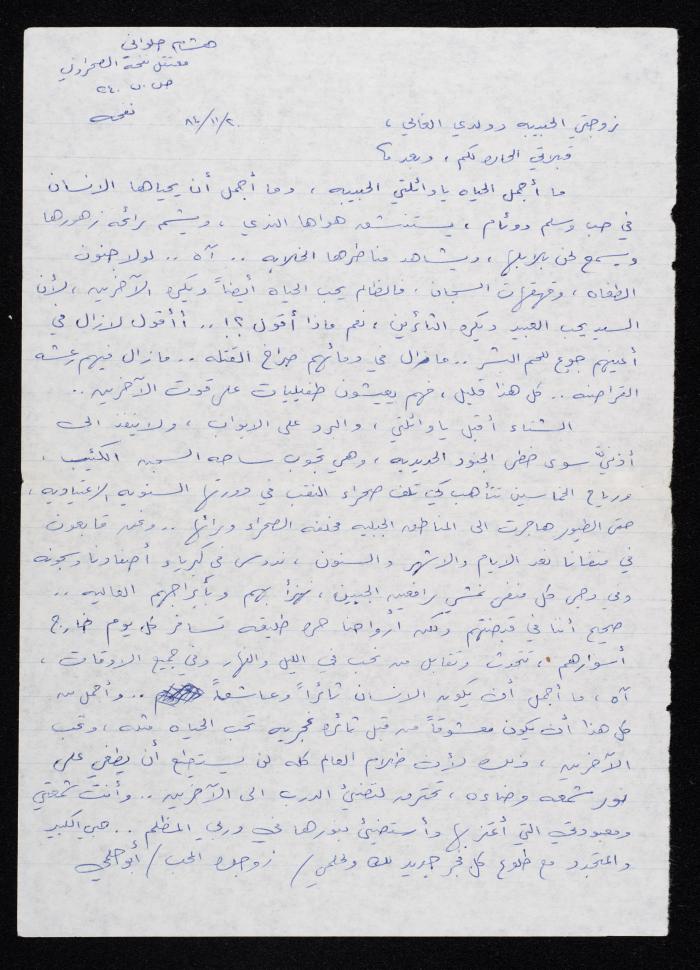 هشام حلواني
معتقل نفحة الصحراوي
ص.ب ٢٤٠
نفحه
٨٤/١١/٢٠
زوجتي الحبيبه وولدي الغالي ،
قبلاتي الحاره لكم ، وبعد
ما أجمل الحياه يا وائلتي الحبيبه ، وما أجمل أن يحياها الانسان
في حب وسلم ووئام ، يستنشق هواها الندي ، ويشم رائحة زهورها
ويسمع لحن بلابلها ، ويشاهد مناظرها الخلابه .. آه .. لولا جنون
الطغاه ، وقهقهات السجان ، فالظالم يحب الحياه أيضاً ويكره الآخرين ، لأن
السيد يحب العبيد ويكره الثائرين ، نعم ماذا أقول ؟! .. أأقول لازال في
أعينهم جوع للحم البشر .. مازال في دمائهم صراخ القتله .. مازال فيهم
القراصنه .. كل هذا قليل ، فهم يعيشون طفيليات على قوت الآخرين ..
الشتاء أقبل يا وائلتي ، والبرد على الابواب ، ولا ينفذ الى
أذنيَّ سوى خطى الجنود الحديديه ، وهي تجوب ساحه السجن الكئيب .
ورياح الخماسين تتأهب كي تلف صحراء النقب في دورتها السنويه الاعتياديه ،
حتى الطيور هاجرت الى المناطق الجبليه مخلفه الصحراء ورائها .. ونحن قابعون
في منفانا نعد الايام والاشهر والسنون ، ندوس في كبرياء أصفادنا وسجونه
وفي دجى كل منفى نمشي رافعين الجبين ، نهزأ بهم وبأبراجهم العاليه ..
صحيح أننا في قبضتهم ولكن أرواحنا حره طليقه تسافر كل يوم خارج
أسوارهم ، تتحدث وتقابل من نحب في الليل والنهار وفي جميع الاوقات ،
آه ، ما أجمل أن يكون الانسان ثائراً وعاشقاً .. وأجمل من
كل هذا أن يكون معشوقاً من قبل ثائره غجريه تحب الحياه مثله ، وتحب
الآخرين ، وذلك لأن ظلام العالم كله لن يستطيع أن يطغي على
نور شمعه وضاءه ، تحترق لتضيئ الدرب الى الآخرين .. وأنت شمعتي
ومعبودتي التي أعتز بها وأستضيئ بنورها في دربي المظلم .. حبي الكبير
والمتجدد مع طلوع كل فجر جديد لك ولحلمي / زوجك المحب / أبو حلمي